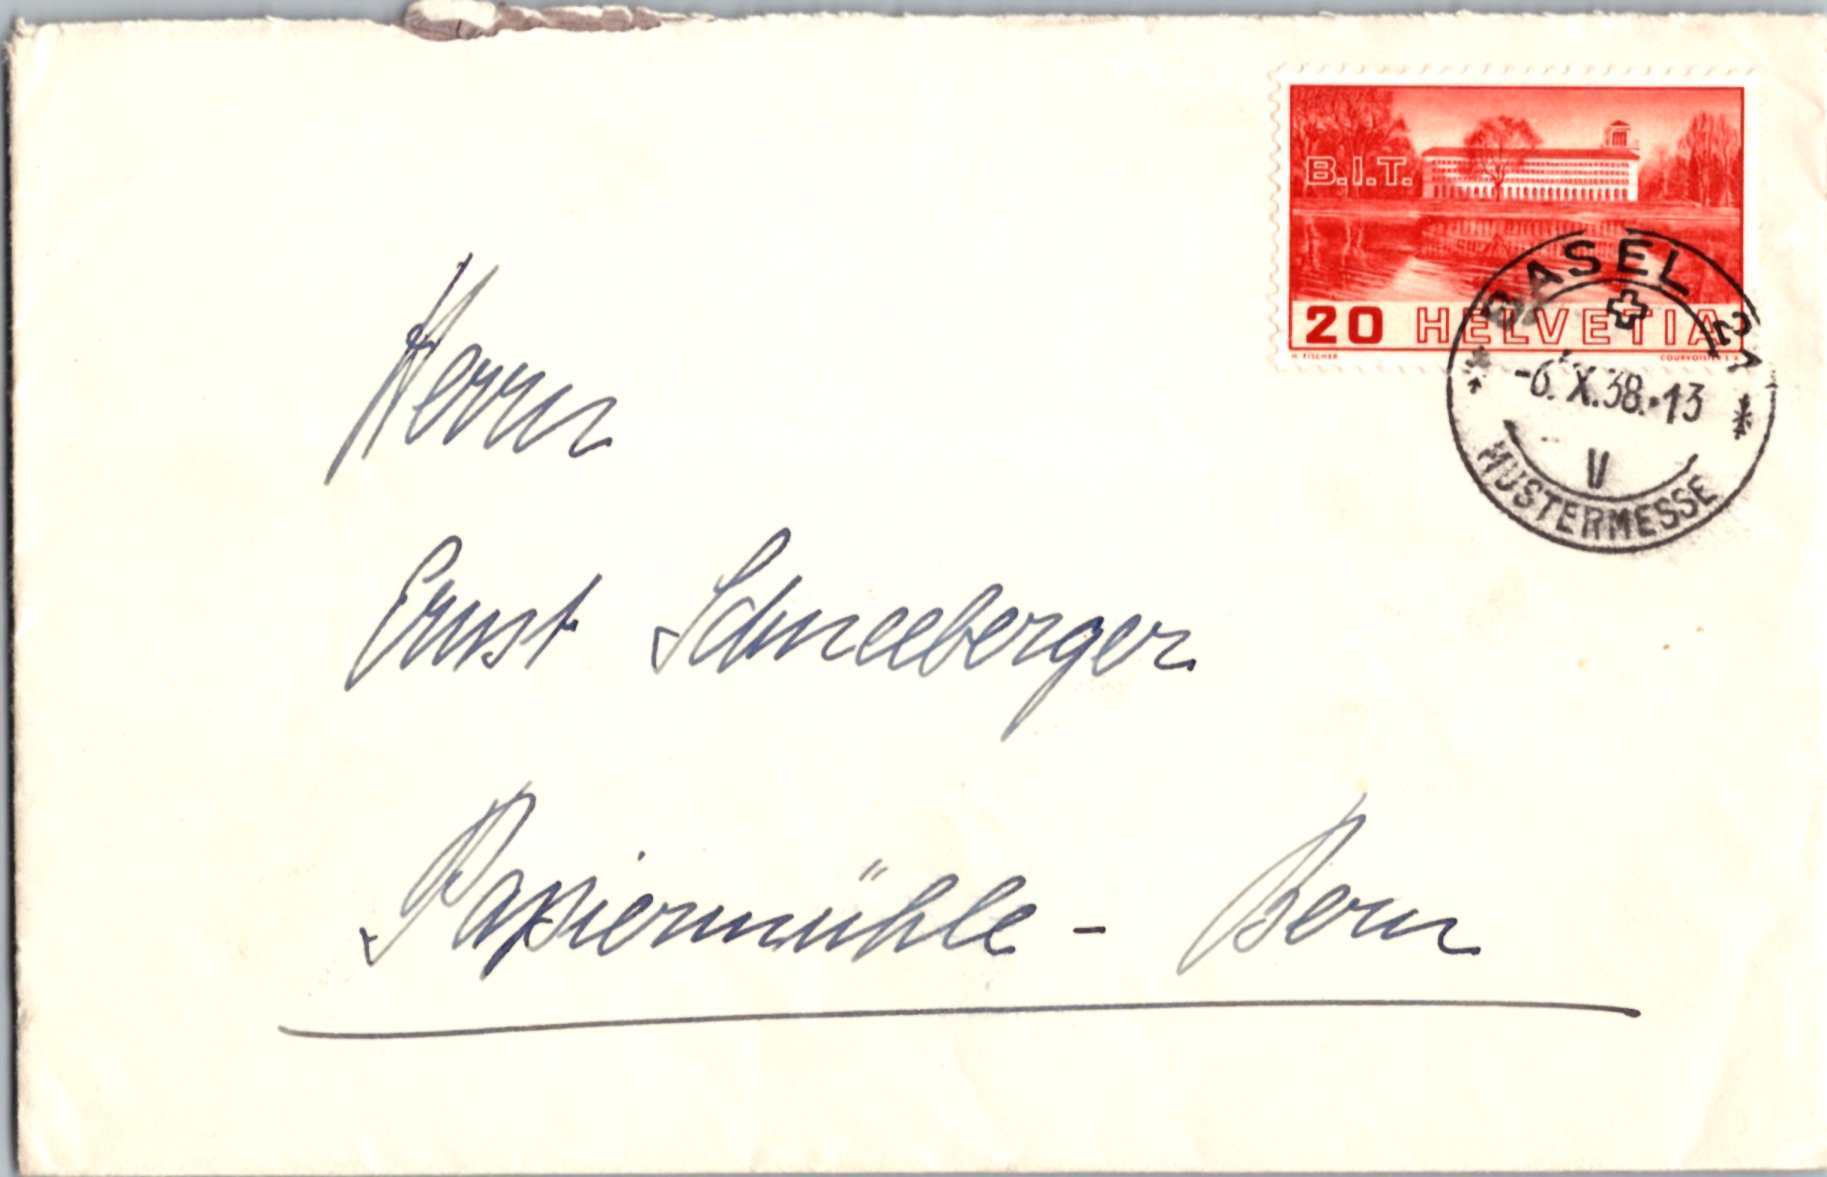 B.I.T.
20 HELVETIA
H. FISCHER
COURVOISIER S.A.
BASEL 21
-6.X.38.-13
V
MUSTERMESSE
Herrn
Ernst Schneeberger
Papiermühle - Bern